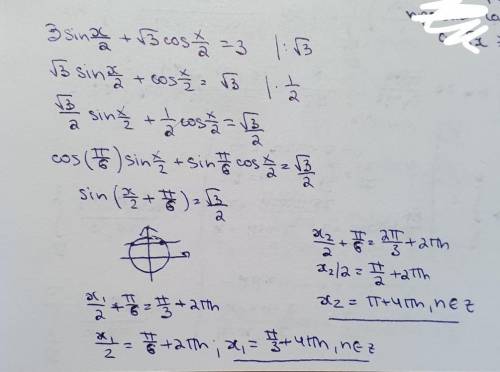 3 sin x/2 + √3 cos x/2 = 3 |: √3
√3 sin x/2 + cos x/2 = √3 |· 1/2
√3/2 sin x/2 + 1/2 cos x/2 = √3/2
cos(π/6) sin x/2 + sin π/6 cos x/2 = √3/2
sin(x/2 + π/6) = √3/2
x₁/2 + π/6 = π/3 + 2πn
x₁/2 = π/6 + 2πn; x₁ = π/3 + 4πn, n∈z
x₂/2 + π/6 = 2π/3 + 2πn
x₂/2 = π/2 + 2πn
x₂ = π + 4πn, n∈z